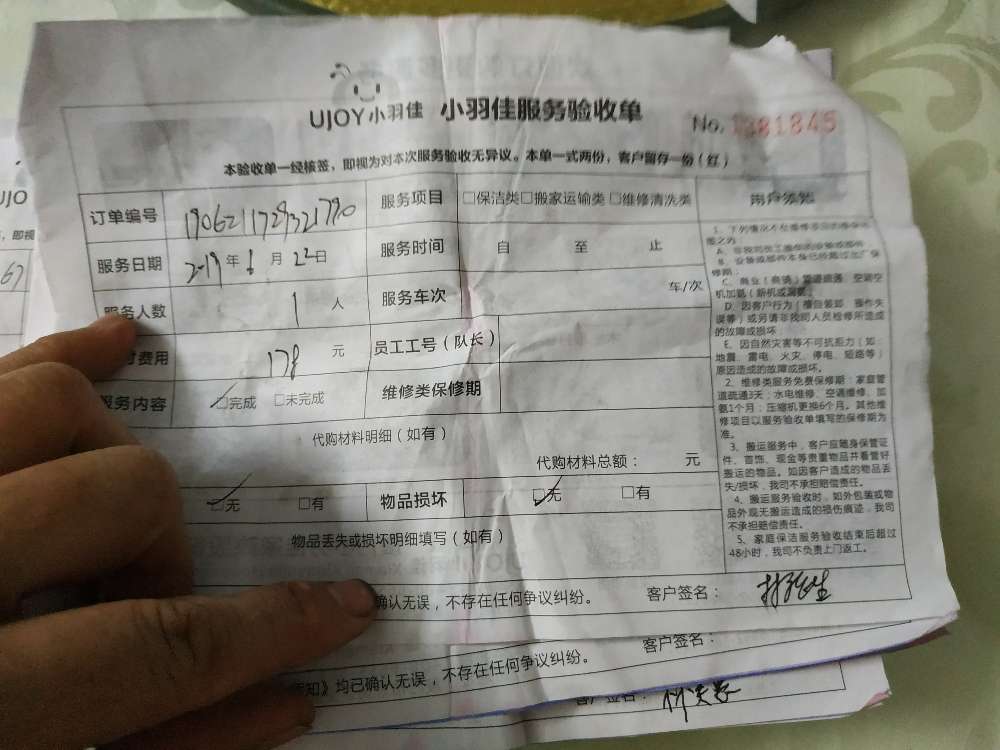 UJOY小羽佳 小羽佳服务验收单
No. 1381845
本验收单一经核签，即视为对本次服务验收无异议。本单一式两份，客户留存一份（红）
订单编号 1906211729321790 服务项目 □保洁类□搬家运输类 □维修清洗类
服务日期 2019年6月22日 服务时间 自 至 止
服务人数 1 人 服务车次 车/次
付费用 178 元 员工工号（队长）
服务内容 □完成 □未完成 维修类保修期
代购材料明细（如有）
代购材料总额： 元
□无 □有 物品损坏 □无 □有
物品丢失或损坏明细填写（如有）
确认无误，不存在任何争议纠纷。 客户签名：
用户须知
1、下列情况不在维修类的保修范围之内：
C、商业（商铺）管道疏通、空调空机加氨（新机或漏氨）
D、因客户行为（擅自装卸、操作失误等）或另请非我司人员检修所造成的故障或损坏
E、因自然灾害等不可抗拒力（如：地震、雷电、火灾、停电、短路等）原因造成的故障或损坏。
2、维修类服务免费保修期：家庭管道疏通3天；水电维修、空调维修、加氨1个月；压缩机更换6个月。其他维修项目以服务验收单填写的保修期为准。
3、搬运服务中，客户应随身保管证件、首饰、现金等贵重物品并看管好搬运的物品。如因客户造成的物品丢失/损坏，我司不承担赔偿责任。
4、搬运服务验收时，如外包装或物品外观无搬运造成的损伤痕迹，我司不承担赔偿责任。
5、家庭保洁服务验收结束后超过48小时，我司不负责上门返工。
客户签名：
知》均已确认无误，不存在任何争议纠纷。
UJO
，即视
67